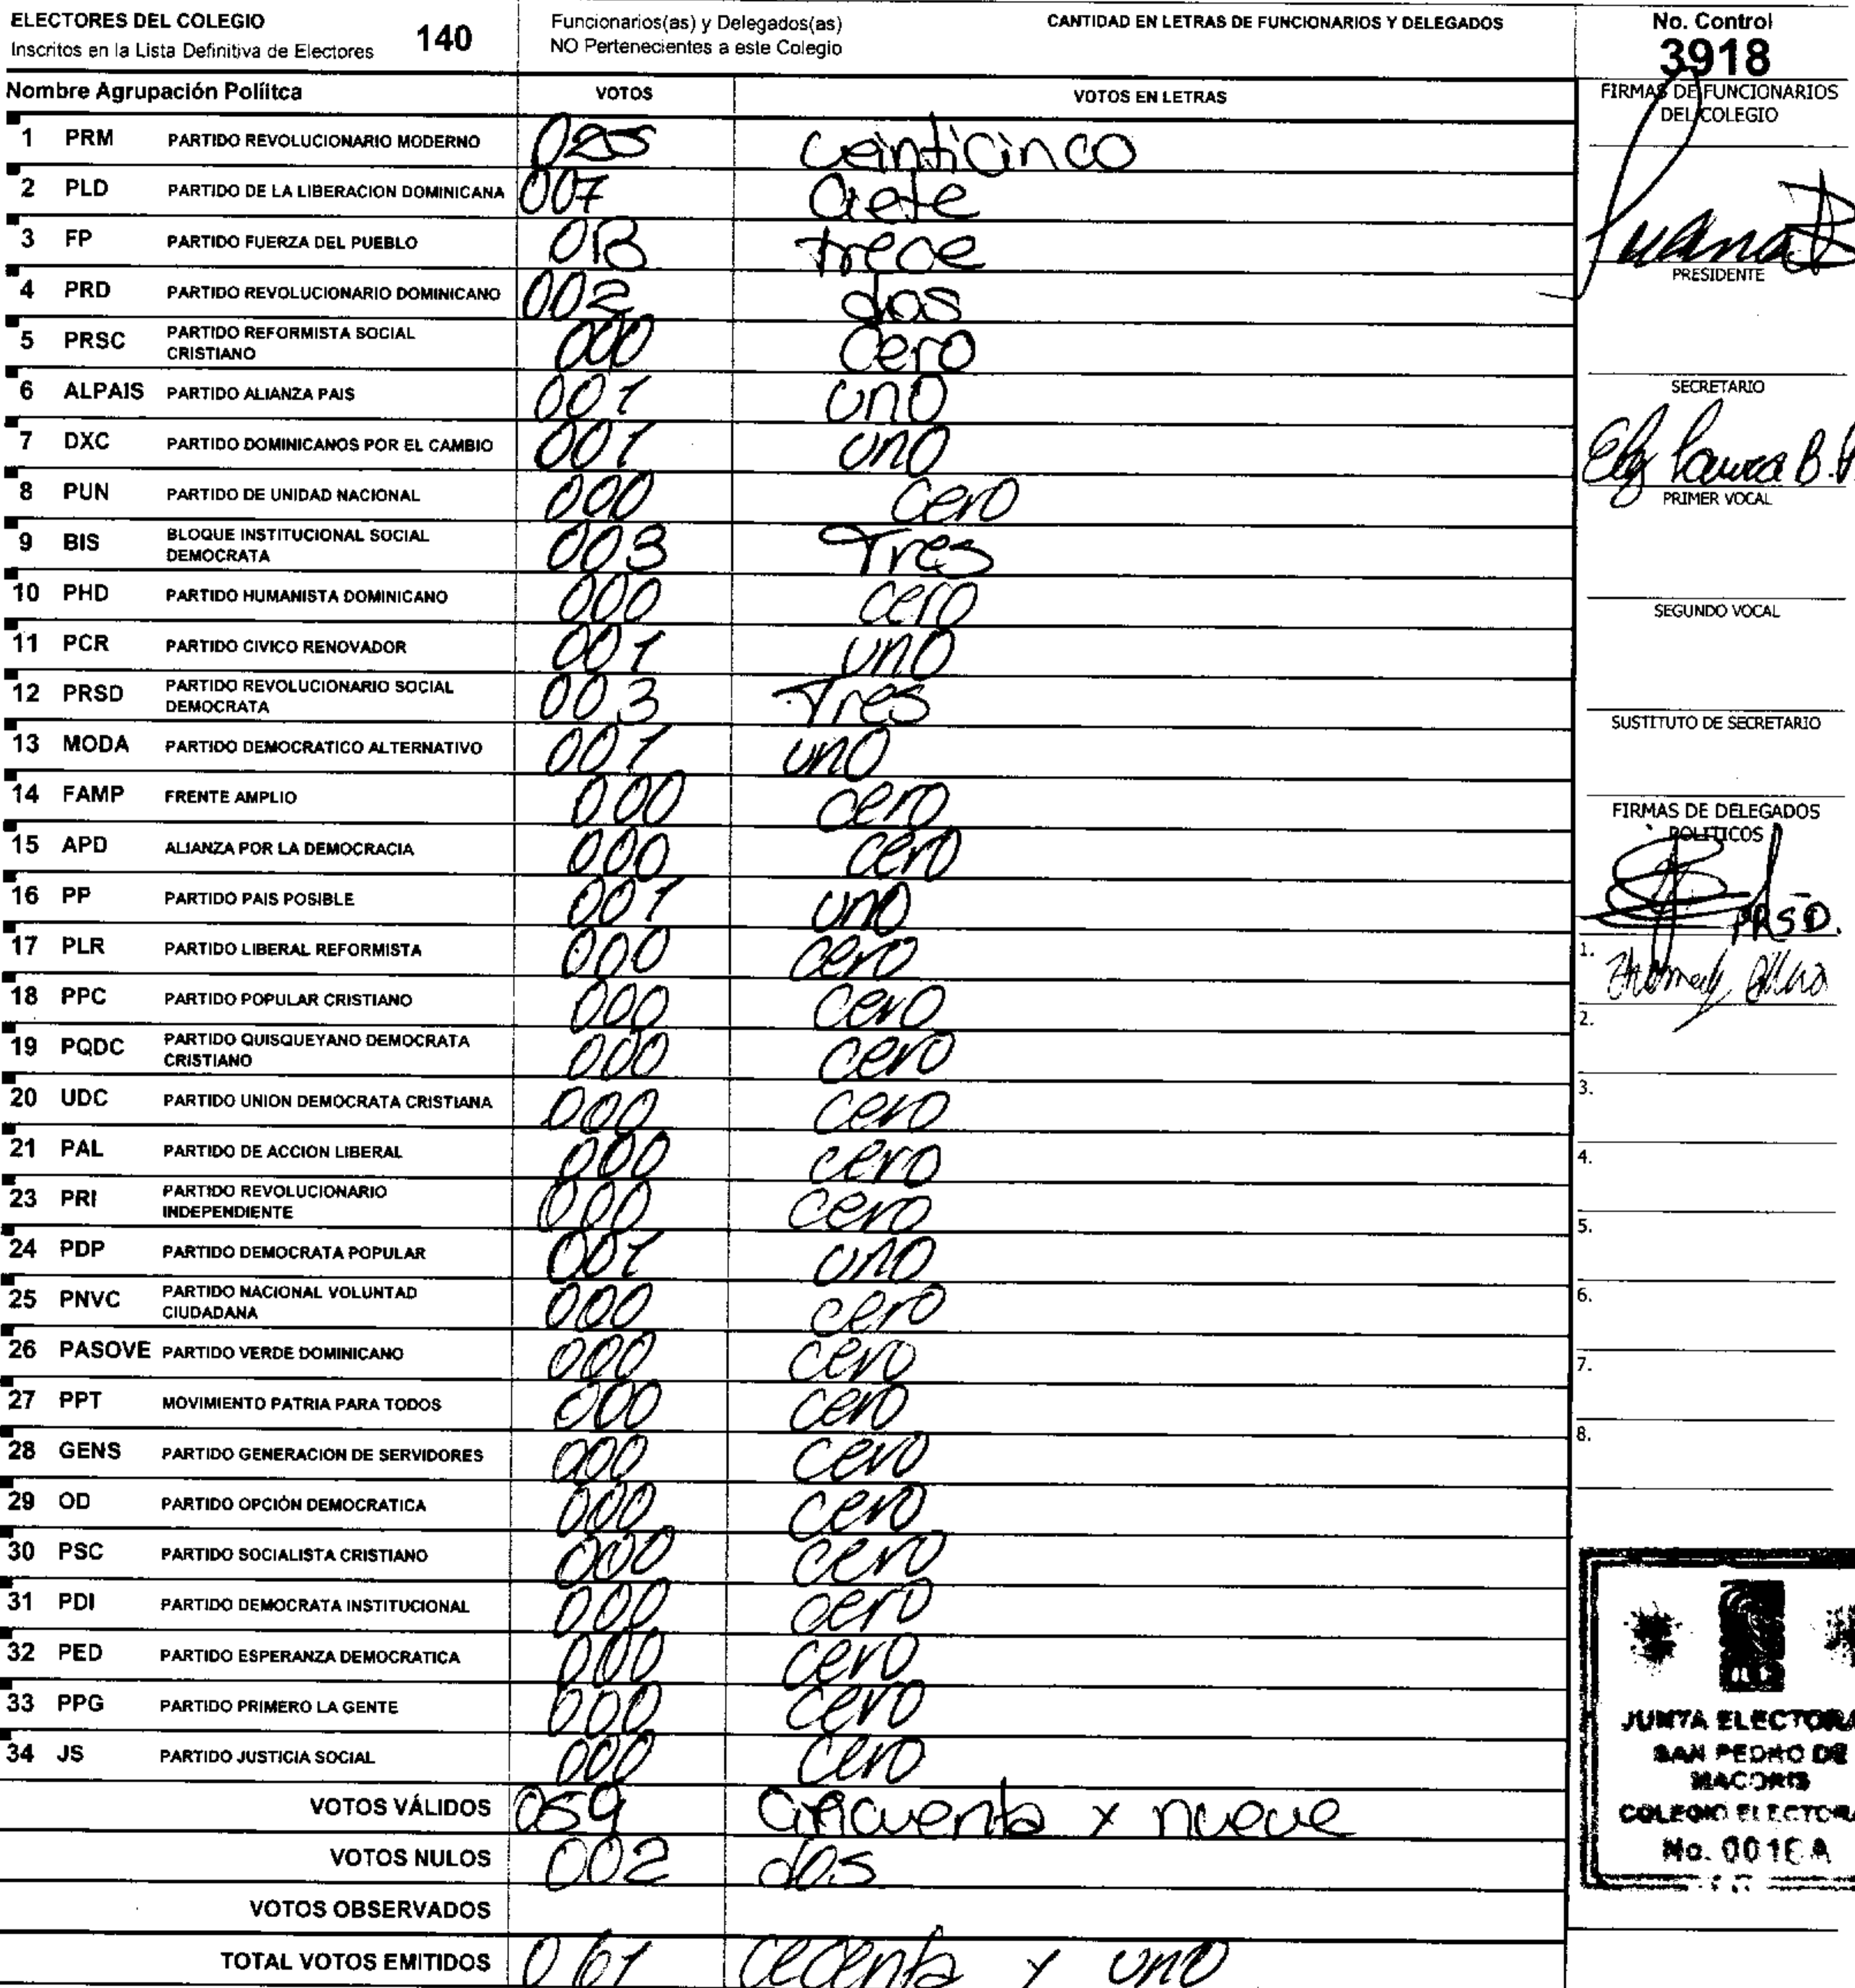 ELECTORES DEL COLEGIO
Inscritos en la Lista Definitiva de Electores 140
Funcionarios(as) y Delegados(as)
NO Pertenecientes a este Colegio
CANTIDAD EN LETRAS DE FUNCIONARIOS Y DELEGADOS
No. Control
3918
Nombre Agrupación Políitca VOTOS VOTOS EN LETRAS
1 PRM PARTIDO REVOLUCIONARIO MODERNO 025 veinticinco
2 PLD PARTIDO DE LA LIBERACION DOMINICANA 007 ciete
3 FP PARTIDO FUERZA DEL PUEBLO 013 trece
4 PRD PARTIDO REVOLUCIONARIO DOMINICANO 002 dos
5 PRSC PARTIDO REFORMISTA SOCIAL
CRISTIANO 000 Cero
6 ALPAIS PARTIDO ALIANZA PAIS 001 uno
7 DXC PARTIDO DOMINICANOS POR EL CAMBIO 001 uno
8 PUN PARTIDO DE UNIDAD NACIONAL 000 cero
9 BIS BLOQUE INSTITUCIONAL SOCIAL
DEMOCRATA 003 Tres
10 PHD PARTIDO HUMANISTA DOMINICANO 000 cero
11 PCR PARTIDO CIVICO RENOVADOR 001 uno
12 PRSD PARTIDO REVOLUCIONARIO SOCIAL
DEMOCRATA 003 Tres
13 MODA PARTIDO DEMOCRATICO ALTERNATIVO 001 uno
14 FAMP FRENTE AMPLIO 000 cero
15 APD ALIANZA POR LA DEMOCRACIA 000 cero
16 PP PARTIDO PAIS POSIBLE 001 uno
17 PLR PARTIDO LIBERAL REFORMISTA 000 cero
18 PPC PARTIDO POPULAR CRISTIANO 000 cero
19 PQDC PARTIDO QUISQUEYANO DEMOCRATA
CRISTIANO 000 cero
20 UDC PARTIDO UNION DEMOCRATA CRISTIANA 000 cero
21 PAL PARTIDO DE ACCION LIBERAL 000 cero
23 PRI PARTIDO REVOLUCIONARIO
INDEPENDIENTE 000 cero
24 PDP PARTIDO DEMOCRATA POPULAR 001 uno
25 PNVC PARTIDO NACIONAL VOLUNTAD
CIUDADANA 000 cero
26 PASOVE PARTIDO VERDE DOMINICANO 000 cero
27 PPT MOVIMIENTO PATRIA PARA TODOS 000 cero
28 GENS PARTIDO GENERACION DE SERVIDORES 000 cero
29 OD PARTIDO OPCIÓN DEMOCRATICA 000 cero
30 PSC PARTIDO SOCIALISTA CRISTIANO 000 cero
31 PDI PARTIDO DEMOCRATA INSTITUCIONAL 000 cero
32 PED PARTIDO ESPERANZA DEMOCRATICA 000 cero
33 PPG PARTIDO PRIMERO LA GENTE 000 cero
34 JS PARTIDO JUSTICIA SOCIAL 000 cero
VOTOS VÁLIDOS 059 cincuenta y nueve
VOTOS NULOS 002 dos
VOTOS OBSERVADOS
TOTAL VOTOS EMITIDOS 061 cecenta y uno
FIRMAS DE FUNCIONARIOS
DEL COLEGIO
PRESIDENTE
SECRETARIO
Laura B.
PRIMER VOCAL
SEGUNDO VOCAL
SUSTITUTO DE SECRETARIO
FIRMAS DE DELEGADOS
POLITICOS
PRSD.
1.
2.
3.
4.
5.
6.
7.
8.
JUNTA ELECTORA
SAN PEDRO DE
MACORIS
COLEGIO ELECTORA
No.